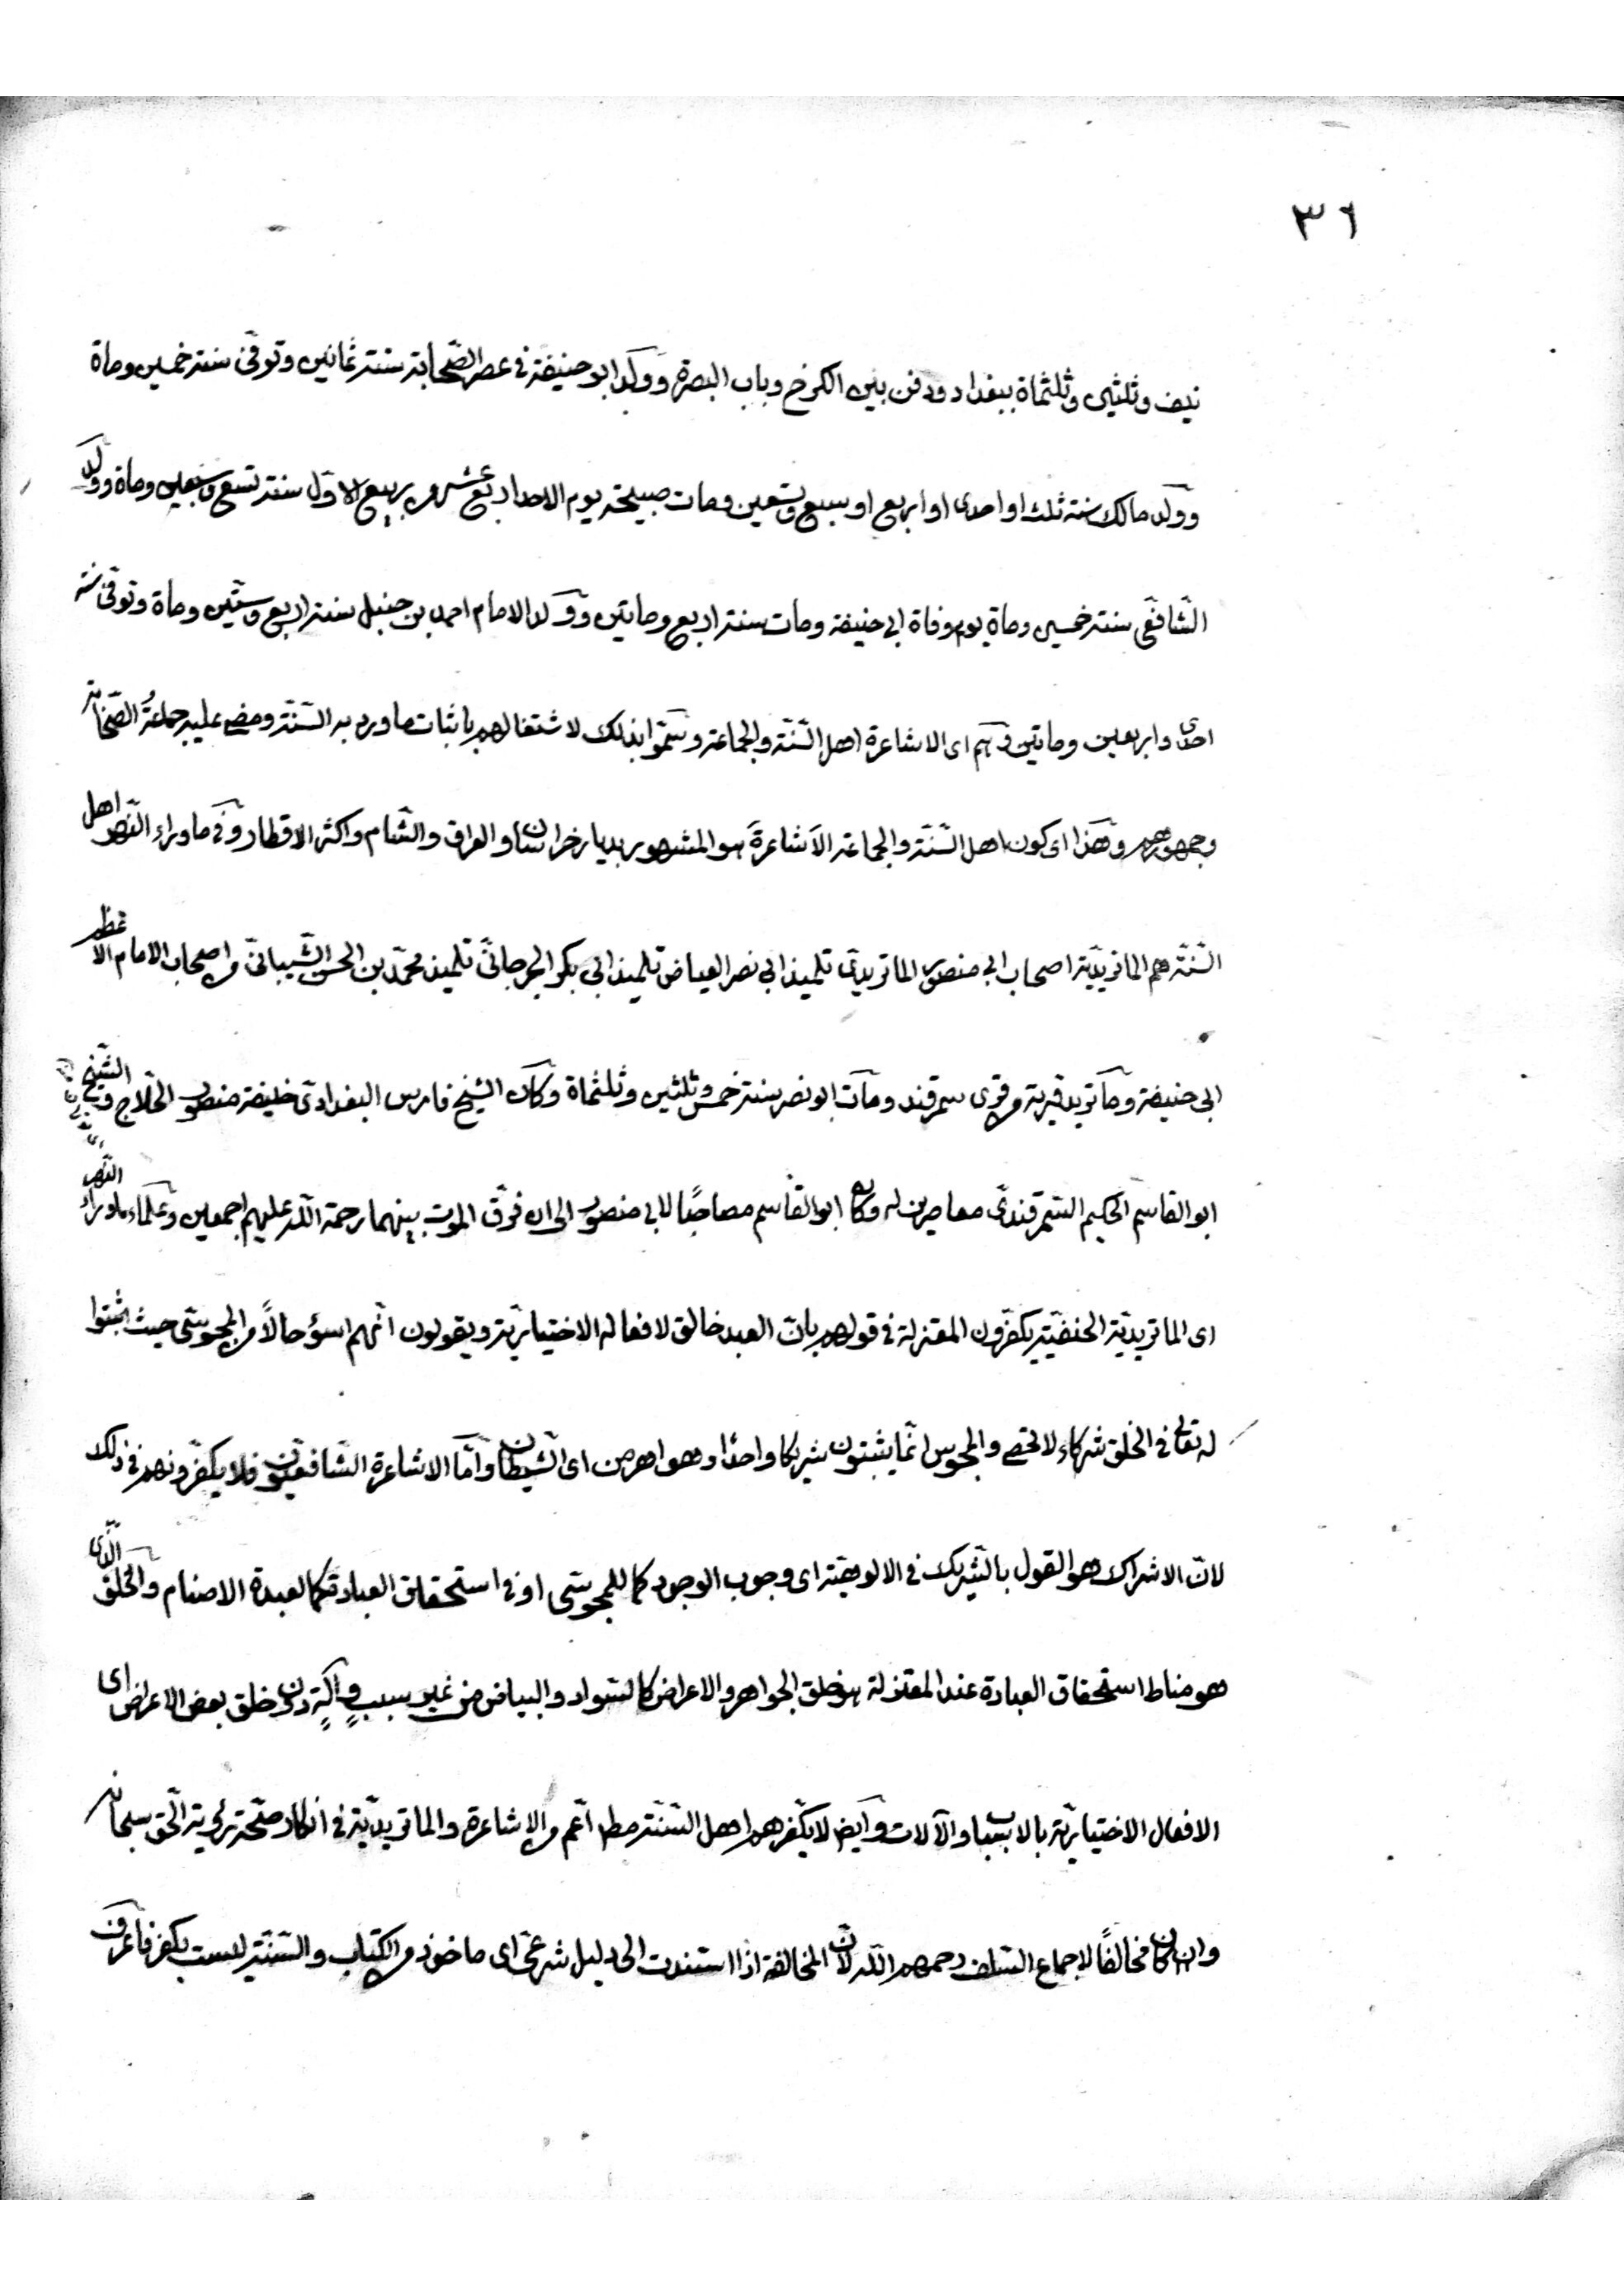 ٣٦
نيف وثلثين وثلثماة ببغداد ودفن بين الكرخ وباب البصرة وولد ابو حنيفة في عصر الصحابة سنة ثمانين وتوفى سنة خمسين وماة
وولد مالك سنة ثلث او احدى او اربع او سبع وتسعين ومات صبيحة يوم الاحد اربع عشر من ربيع الاول سنة تسع وسبعين وماة وولد
الشافعى سنة خمسين وماة يوم وفاة ابى حنيفة ومات سنة اربع وماتين وولد الامام احمد بن حنبل سنة اربع وستين وماة وتوفى سنة
احدى واربعين وماتين وهم اى الاشاعرة اهل السّنّة والجماعة وسمّوا بذلك لاشتغالهم باثبات ما ورد به السّنّة ومضى عليه جماعةُ الصّحابة
وجمهورهم وهذا اى كون اهل السّنّة والجماعة الاشاعرةَ هو المشهور بديار خراسان والعراق والشّام واكثر الاقطار وفى ماوراء النّهر اهل
السّنّة هم الماتريديّة اصحاب ابى منصور الماتريدىّ تلميذ ابى نصر العياض تلميذ ابى بكر الجرجانىّ تلميذ محمّد بن الحسن الشّيبانىّ من اصحاب الامام الاعظم
ابى حنيفة وماتريد قرية من قرى سمرقند ومات ابو نصر سنة خمس وثلثين وثلثماة وكان الشيخ فارس البغدادىّ خليفة منصور الحلّاج والشّيخ
ابو القاسم الحكيم السّمرقندىّ معاصرين له وكان ابو القاسم مصاحبًا لابى منصور الى ان فرّق الموت بينهما رحمة اللّه عليهم اجمعين وعلماء ماوراء النّهر
اى الماتريديّة الحنفيّة يكفّرون المعتزلة فى قولهم بانّ العبد خالق لافعاله الاختياريّة ويقولون انّهم اسؤ حالاً من المجوسى حيث اثبتوا
له تعالى فى الخلق شركاء لا تحصى والمجوس انّما يثبتون شريكا واحدًا وهو اهرمن اى الشّيطان وامّا الاشاعرة الشّافعيّون فلا يكفّرونهم فى ذلك
لانّ الاشراك هو القول بالشّريك فى الالوهيّة اى وجوب الوجود كما للمجوسى او فى استحقاق العبادة كما لعبدة الاصنام والخلق الّذى
هو مناط استحقاق العبادة عند المعتزلة هو خلق الجواهر والاعراض كالسّواد والبياض من غير سببٍ وآلةٍ دون خلق بعض الاعراض اى
الافعال الاختياريّة بالاسباب والآلات وايض لا يكفّرهم اهل السّنّة مط اعّم من الاشاعرة والماتريديّة فى انكار صحّة رؤية الحّق سبحانه
وان كان مخالفًا لاجماع السّلف رحمهم اللّه لانّ المخالفة اذا استندت الى دليل شرعىّ اى ماخوذ من الكتاب والسّنّة ليست بكفر فاعرف